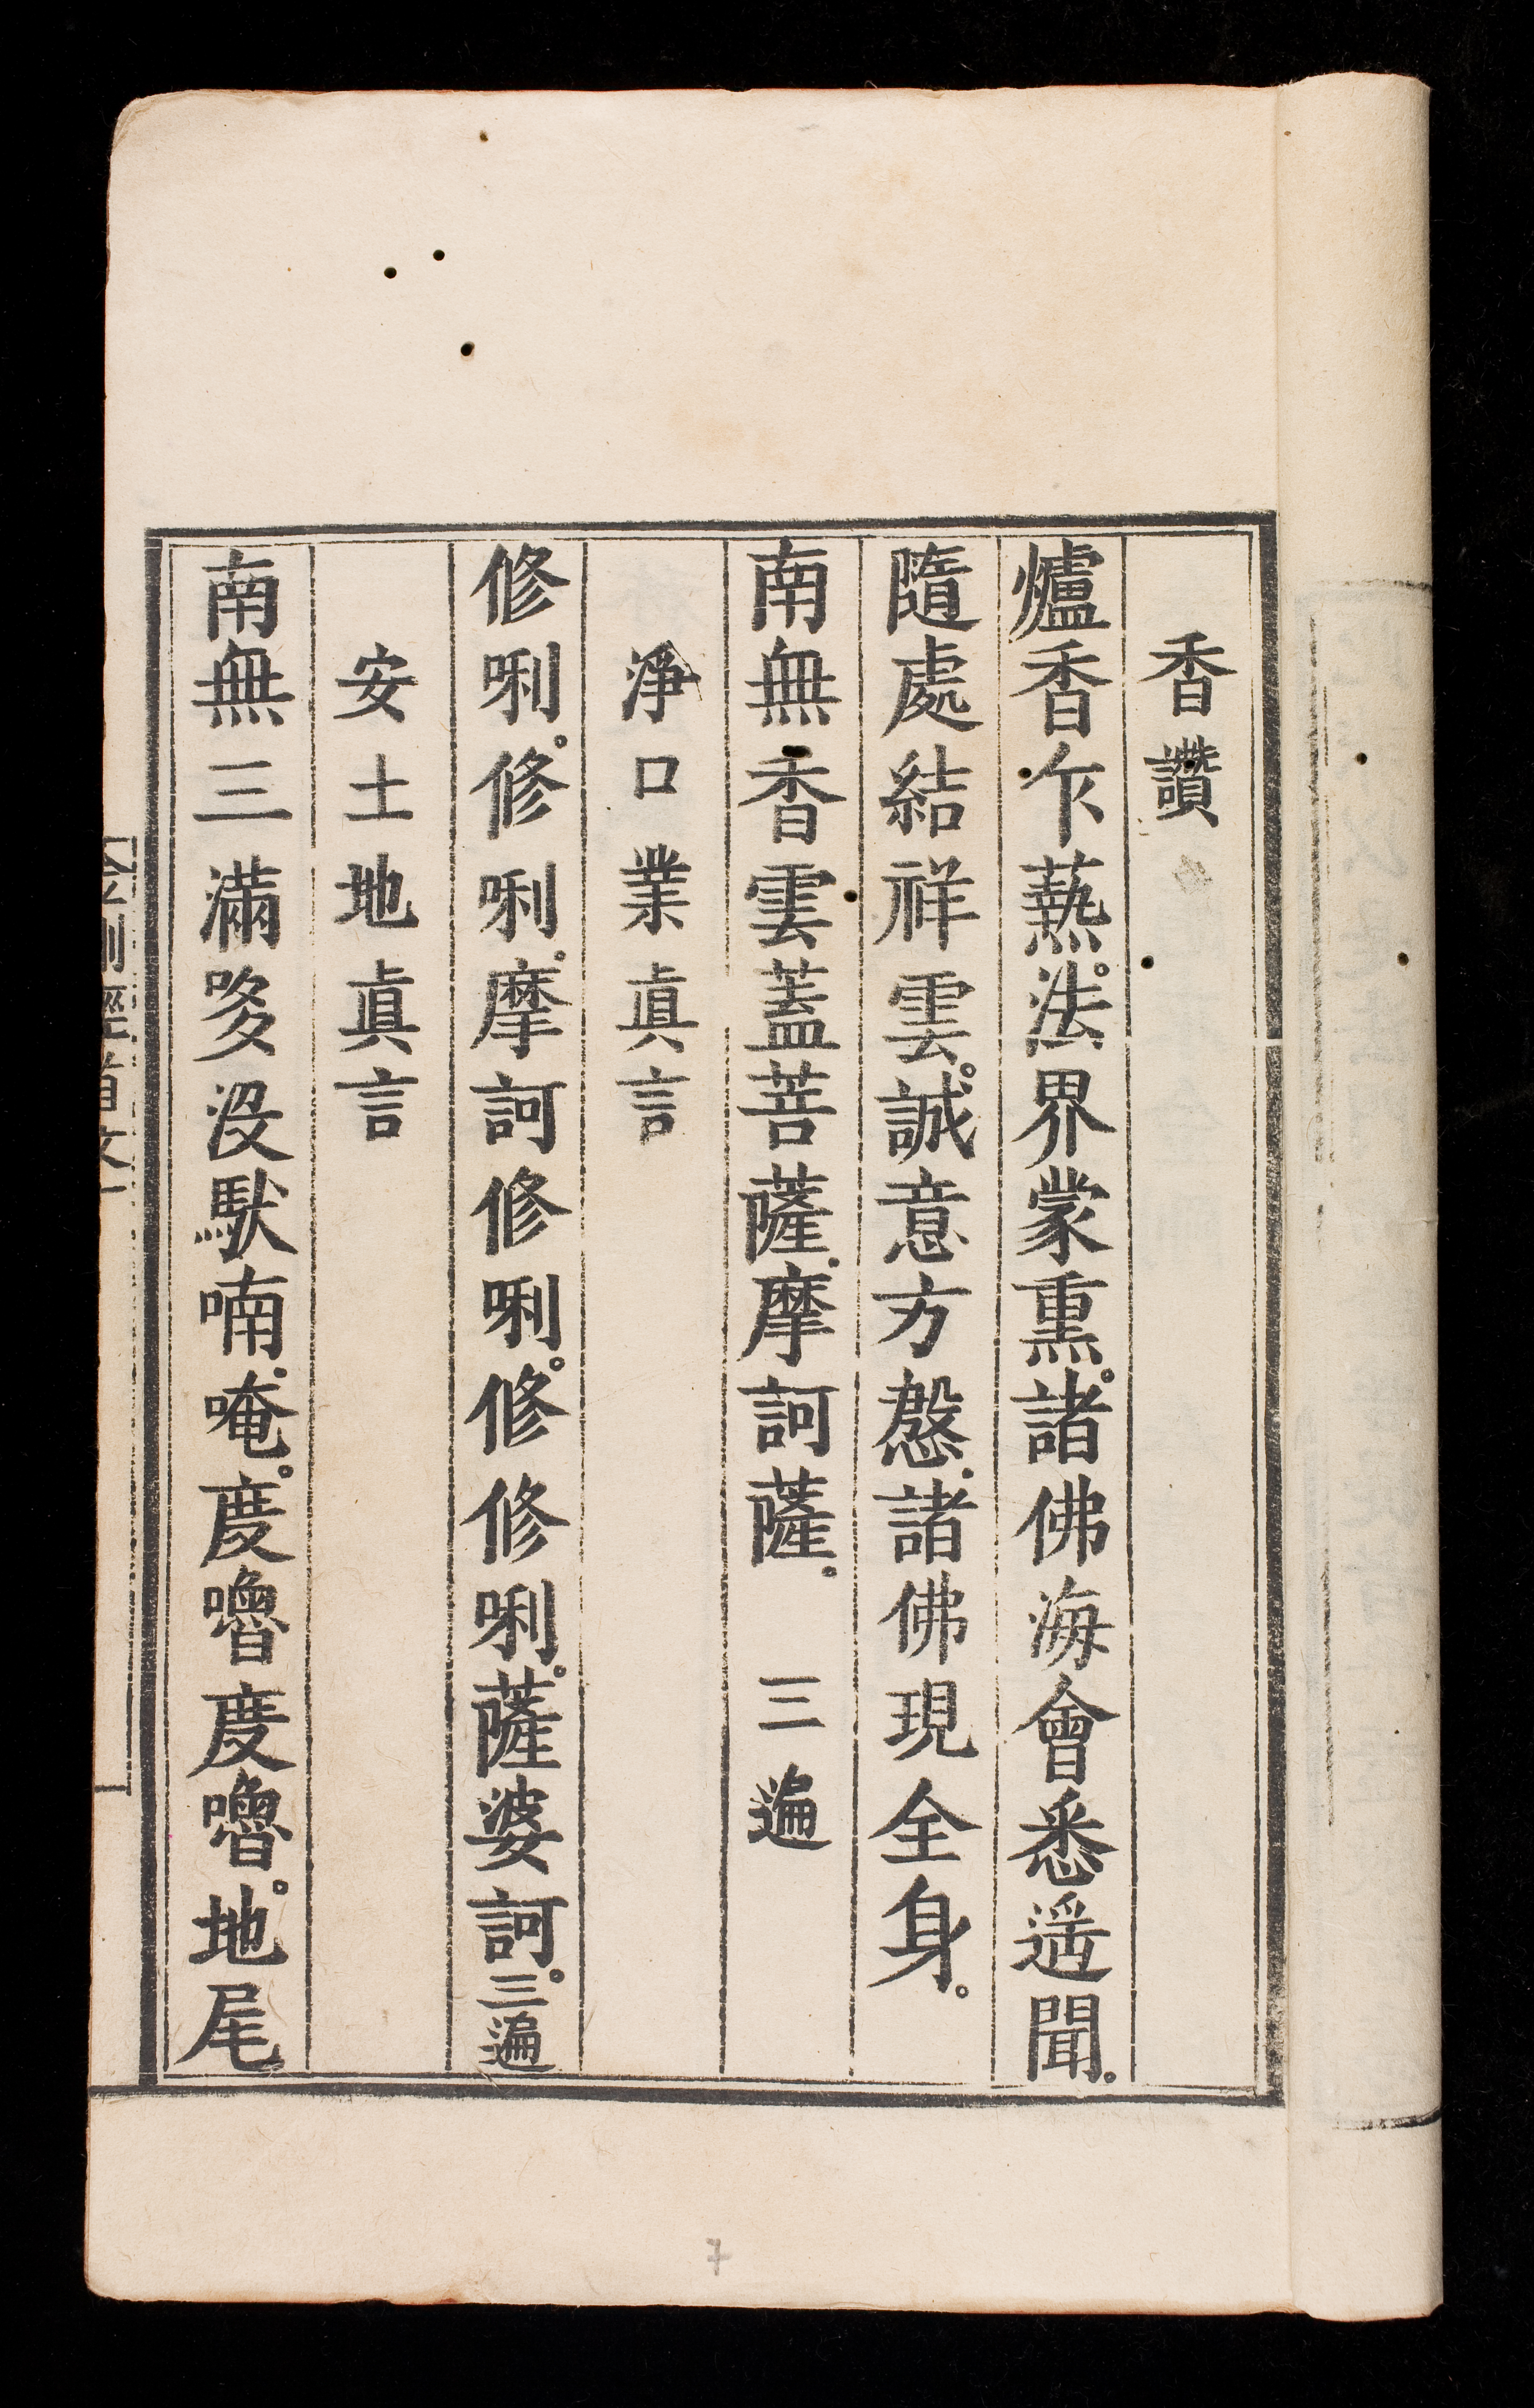 香讚
爐香乍爇。法界蒙熏。諸佛海會悉遥聞。
隨處結祥雲。誠意方慇。諸佛現全身。
南無香雲蓋菩薩。摩訶薩。 三遍
淨口業眞言
修唎。修唎。摩訶修唎。修修唎。薩婆訶。三遍
安土地眞言
南無三滿哆沒馱喃。唵。度嚕度嚕。地尾
金剛經首文 一
7